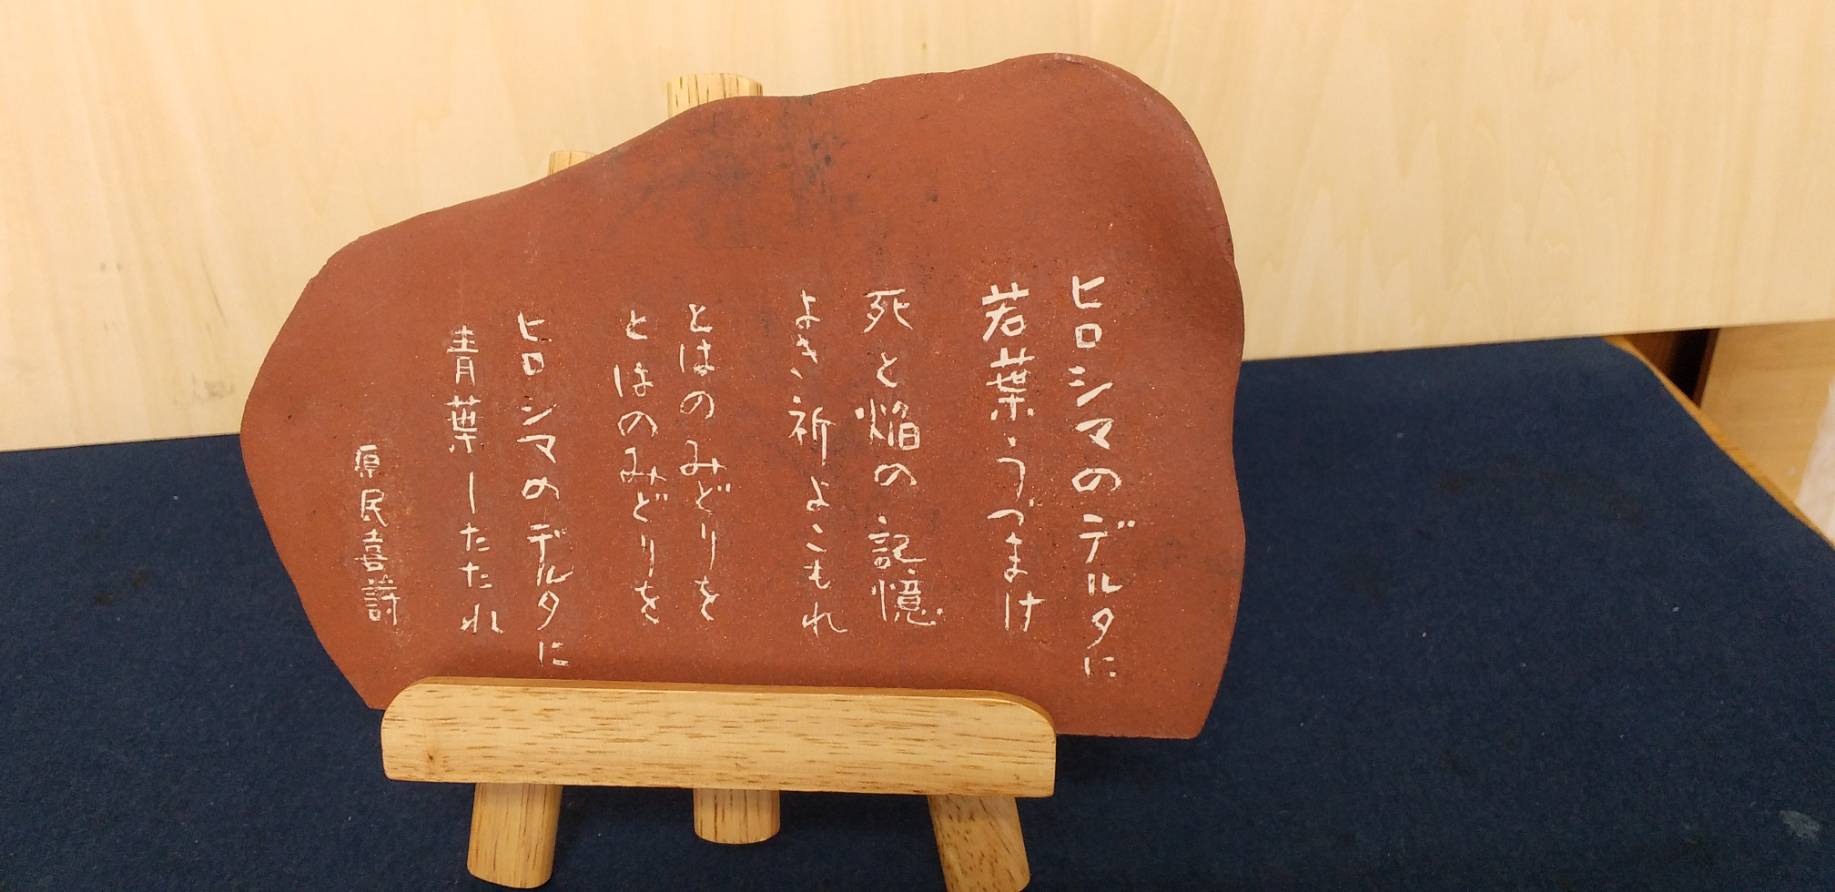 ヒロシマのデルタに
若葉うづまけ
死と焔の記憶
よき祈よこもれ
とはのみどりを
とはのみどりを
ヒロシマのデルタに
青葉したたれ
原民喜詩